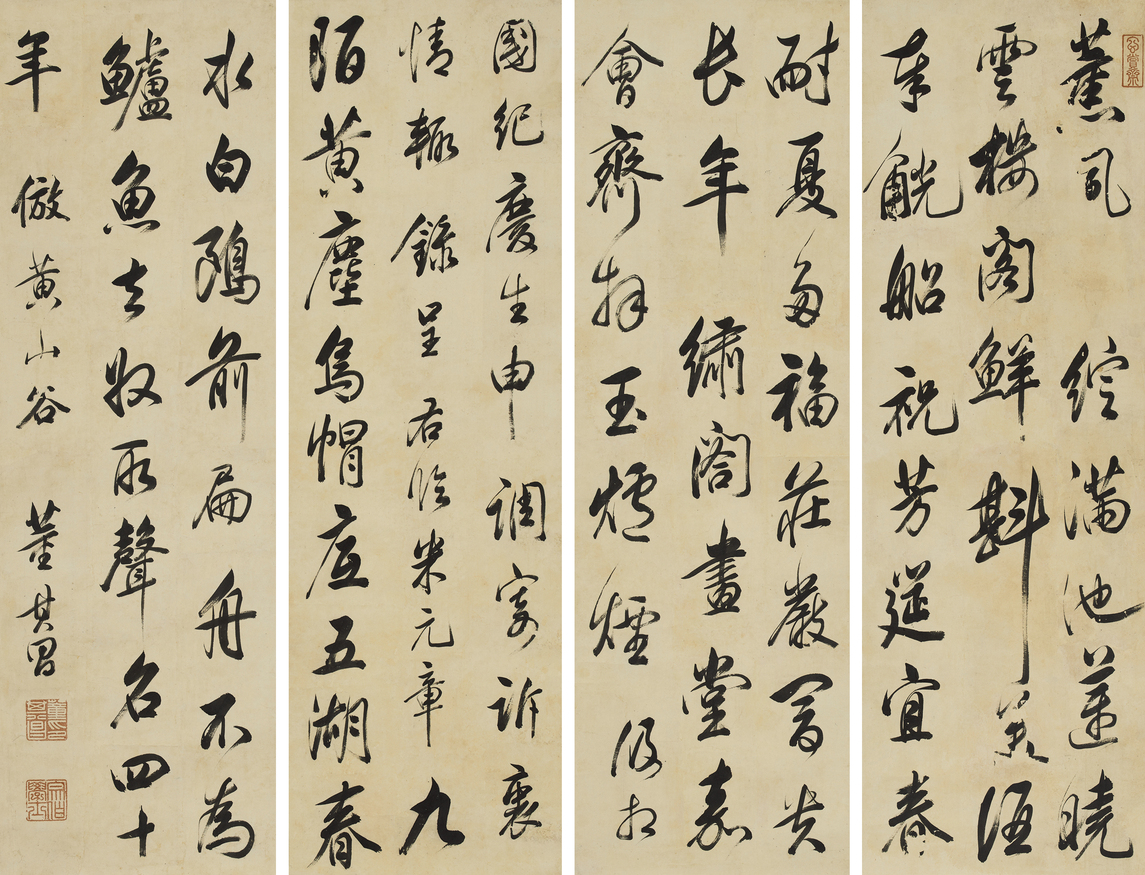 玄賞齋
薰風綻滿池蓮曉
雲樓閣鮮斟美酒
奉觥船祝芳筵宜春
耐夏多福莊嚴富貴
長年繡閣畫堂嘉
會齊拜玉爐煙後相
國紀慶生申調寄訴衷
情輒錄呈右臨米元章九
陌黃塵烏帽底五湖春
水白鷗前扁舟不為
鱸魚去收取聲名四十
年倣黃山谷董其昌
宗伯學士